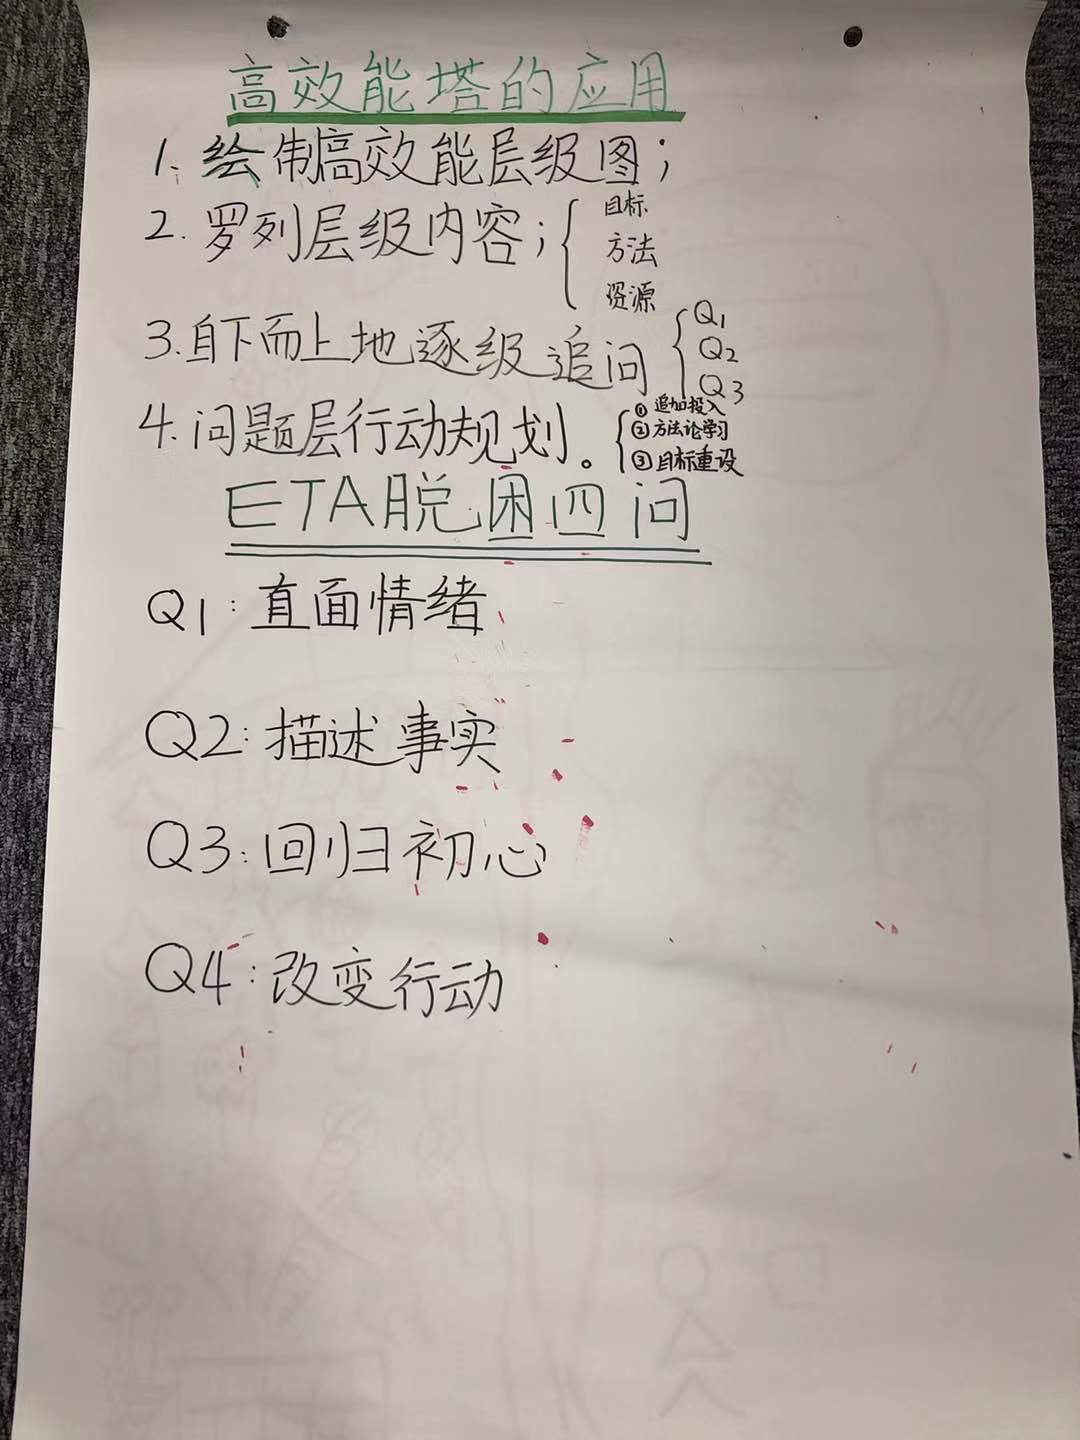 高效能塔的应用
1、绘制高效能层级图；
2. 罗列层级内容；{ 目标
方法
资源
3.自下而上地逐级追问 { Q1
Q2
Q3
4.问题层行动规划。{ ① 追加投入
② 方法论学习
③ 目标重设
ETA脱困四问
Q1：直面情绪
Q2：描述事实
Q3：回归初心
Q4：改变行动